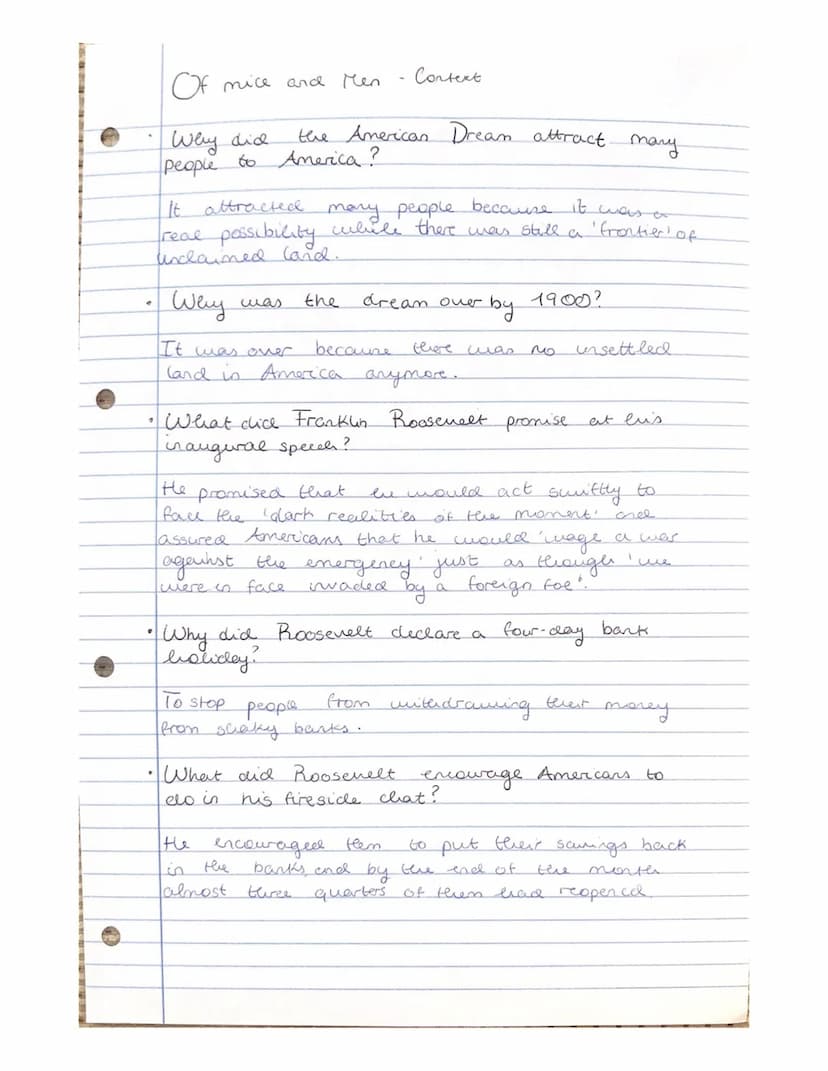 Of mice and Men - Context
Why did the American Dream attract many
people to America?
It attracted many people because it was a
real possibility while there was still a 'frontier' of
unclaimed land.
Why was the dream over by 1900?
It was over because there was no unsettled
land in America anymore.
What did Franklin Roosevelt promise at his
inaugural speech?
He promised that he would act swiftly to
face the 'dark realities of the moment' and
assured Americans that he would 'wage a war
against the emergency' just as though 'we
were in face invaded by a foreign foe'.
Why did Roosevelt declare a four-day bank
holiday?
To stop people from withdrawing their money
from shaky banks.
What did Roosevelt encourage Americans to
do in his fireside chat?
He encouraged them to put their savings back
in the banks, and by the end of the month
almost three quarters of them had reopened